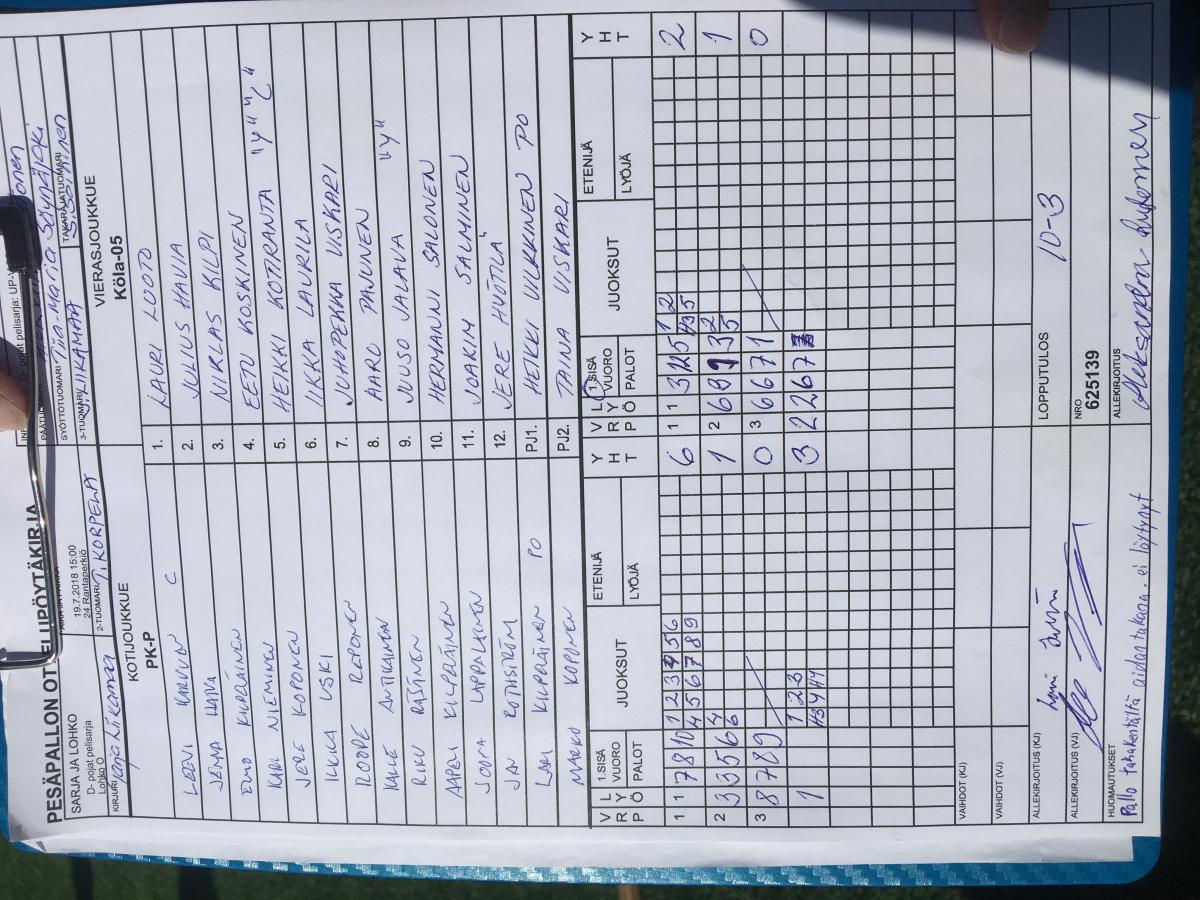 PESÄPALLON OTTELUPÖYTÄKIRJA
SARJA JA LOHKO
D- pojat pelisarja
Lohko O
19.7.2018 15:00
24 Rantaperkiö
D- pojat pelisarja: UP-V
SYÖTTÖTUOMARI Tiia-Maria Seinäjoki
TAKARAJATUOMARI
KIRJURI Karja Liikamaa
2-TUOMARI T. KORPELAT
3-TUOMARI J. LIIKAMAA
KOTIJOUKKUE
PK-P
VIERASJOUKKUE
Köla-05
LEEVI KARVINEN C 1. LAURI LUOTO
JENNA HAIVA 2. JULIUS HAVIA
EINO KILPELÄINEN 3. NIKLAS KILPI
KARI NIEMINEN 4. EETU KOSKINEN
JERE KOPONEN 5. HEIKKI KOTIRANTA "V" "C"
6. IIKKA LAURILA
ROOPE REPONEN 7. JUHOPEKKA VISKARI
KALLE ANTIKAINEN 8. AARO PAJUNEN
RIKU RÄSÄNEN 9. JUUSO JALAVA "V"
AAPELI KILPELÄINEN 10. HERMANNI SALONEN
JOONA LAPPALAINEN 11. JOAKIM SALMINEN
JAN ROTHSTRÖM 12. JERE HUOTILA
LARI KILPELÄINEN PO PJ1. HEIKKI VILKKINEN PO
MARKO KOPONEN PJ2. TAINA VISKARI
VRP LYÖ 1.SISÄ VUORO PALOT JUOKSUT ETENIJÄ LYÖJÄ YHT
VRP LYÖ 1.SISÄ VUORO PALOT JUOKSUT ETENIJÄ LYÖJÄ YHT
1 1 7 8 10 1 2 3 4 5 6 6 1 1 3 12 5 1 2 2
4 5 6 7 8 9 H3 5
2 3 3 5 6 4 1 2 6 8 9 1 3 2 1
6 5
3 8 7 8 9 0 3 6 6 7 1 0
1 1 2 3 3 2 2 6 7
H3 H4 H4
VAIHDOT (KJ)
VAIHDOT (VJ)
ALLEKIRJOITUS (KJ)
LOPPUTULOS 10-3
ALLEKIRJOITUS (VJ)
NRO
625139
HUOMAUTUKSET
Pallo takakentältä aidan takana. ei löytynyt
ALLEKIRJOITUS